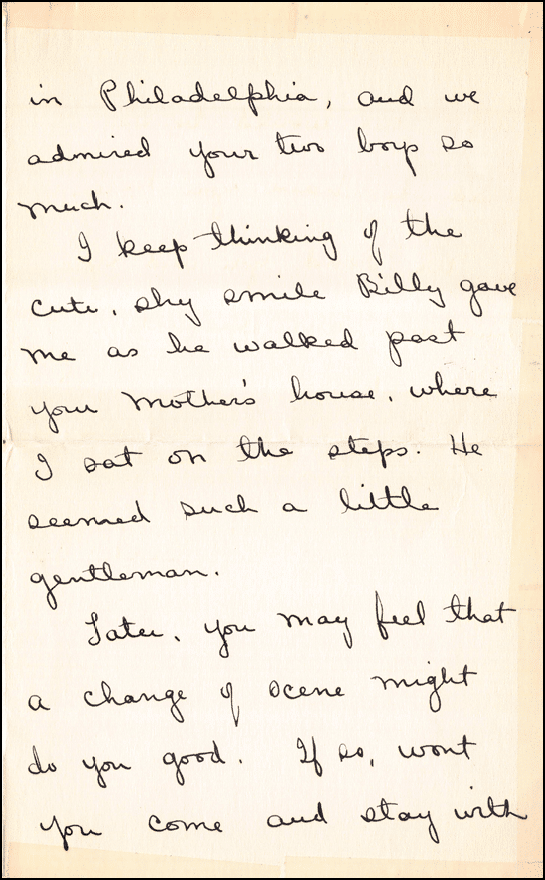 in Philadelphia, and we
admired your two boys so
much.
I keep thinking of the
cute, shy smile Billy gave
me as he walked past
your Mother's house, where
I sat on the steps. He
seemed such a little
gentleman.
Later, you may feel that
a change of scene might
do you good. If so, wont
you come and stay with